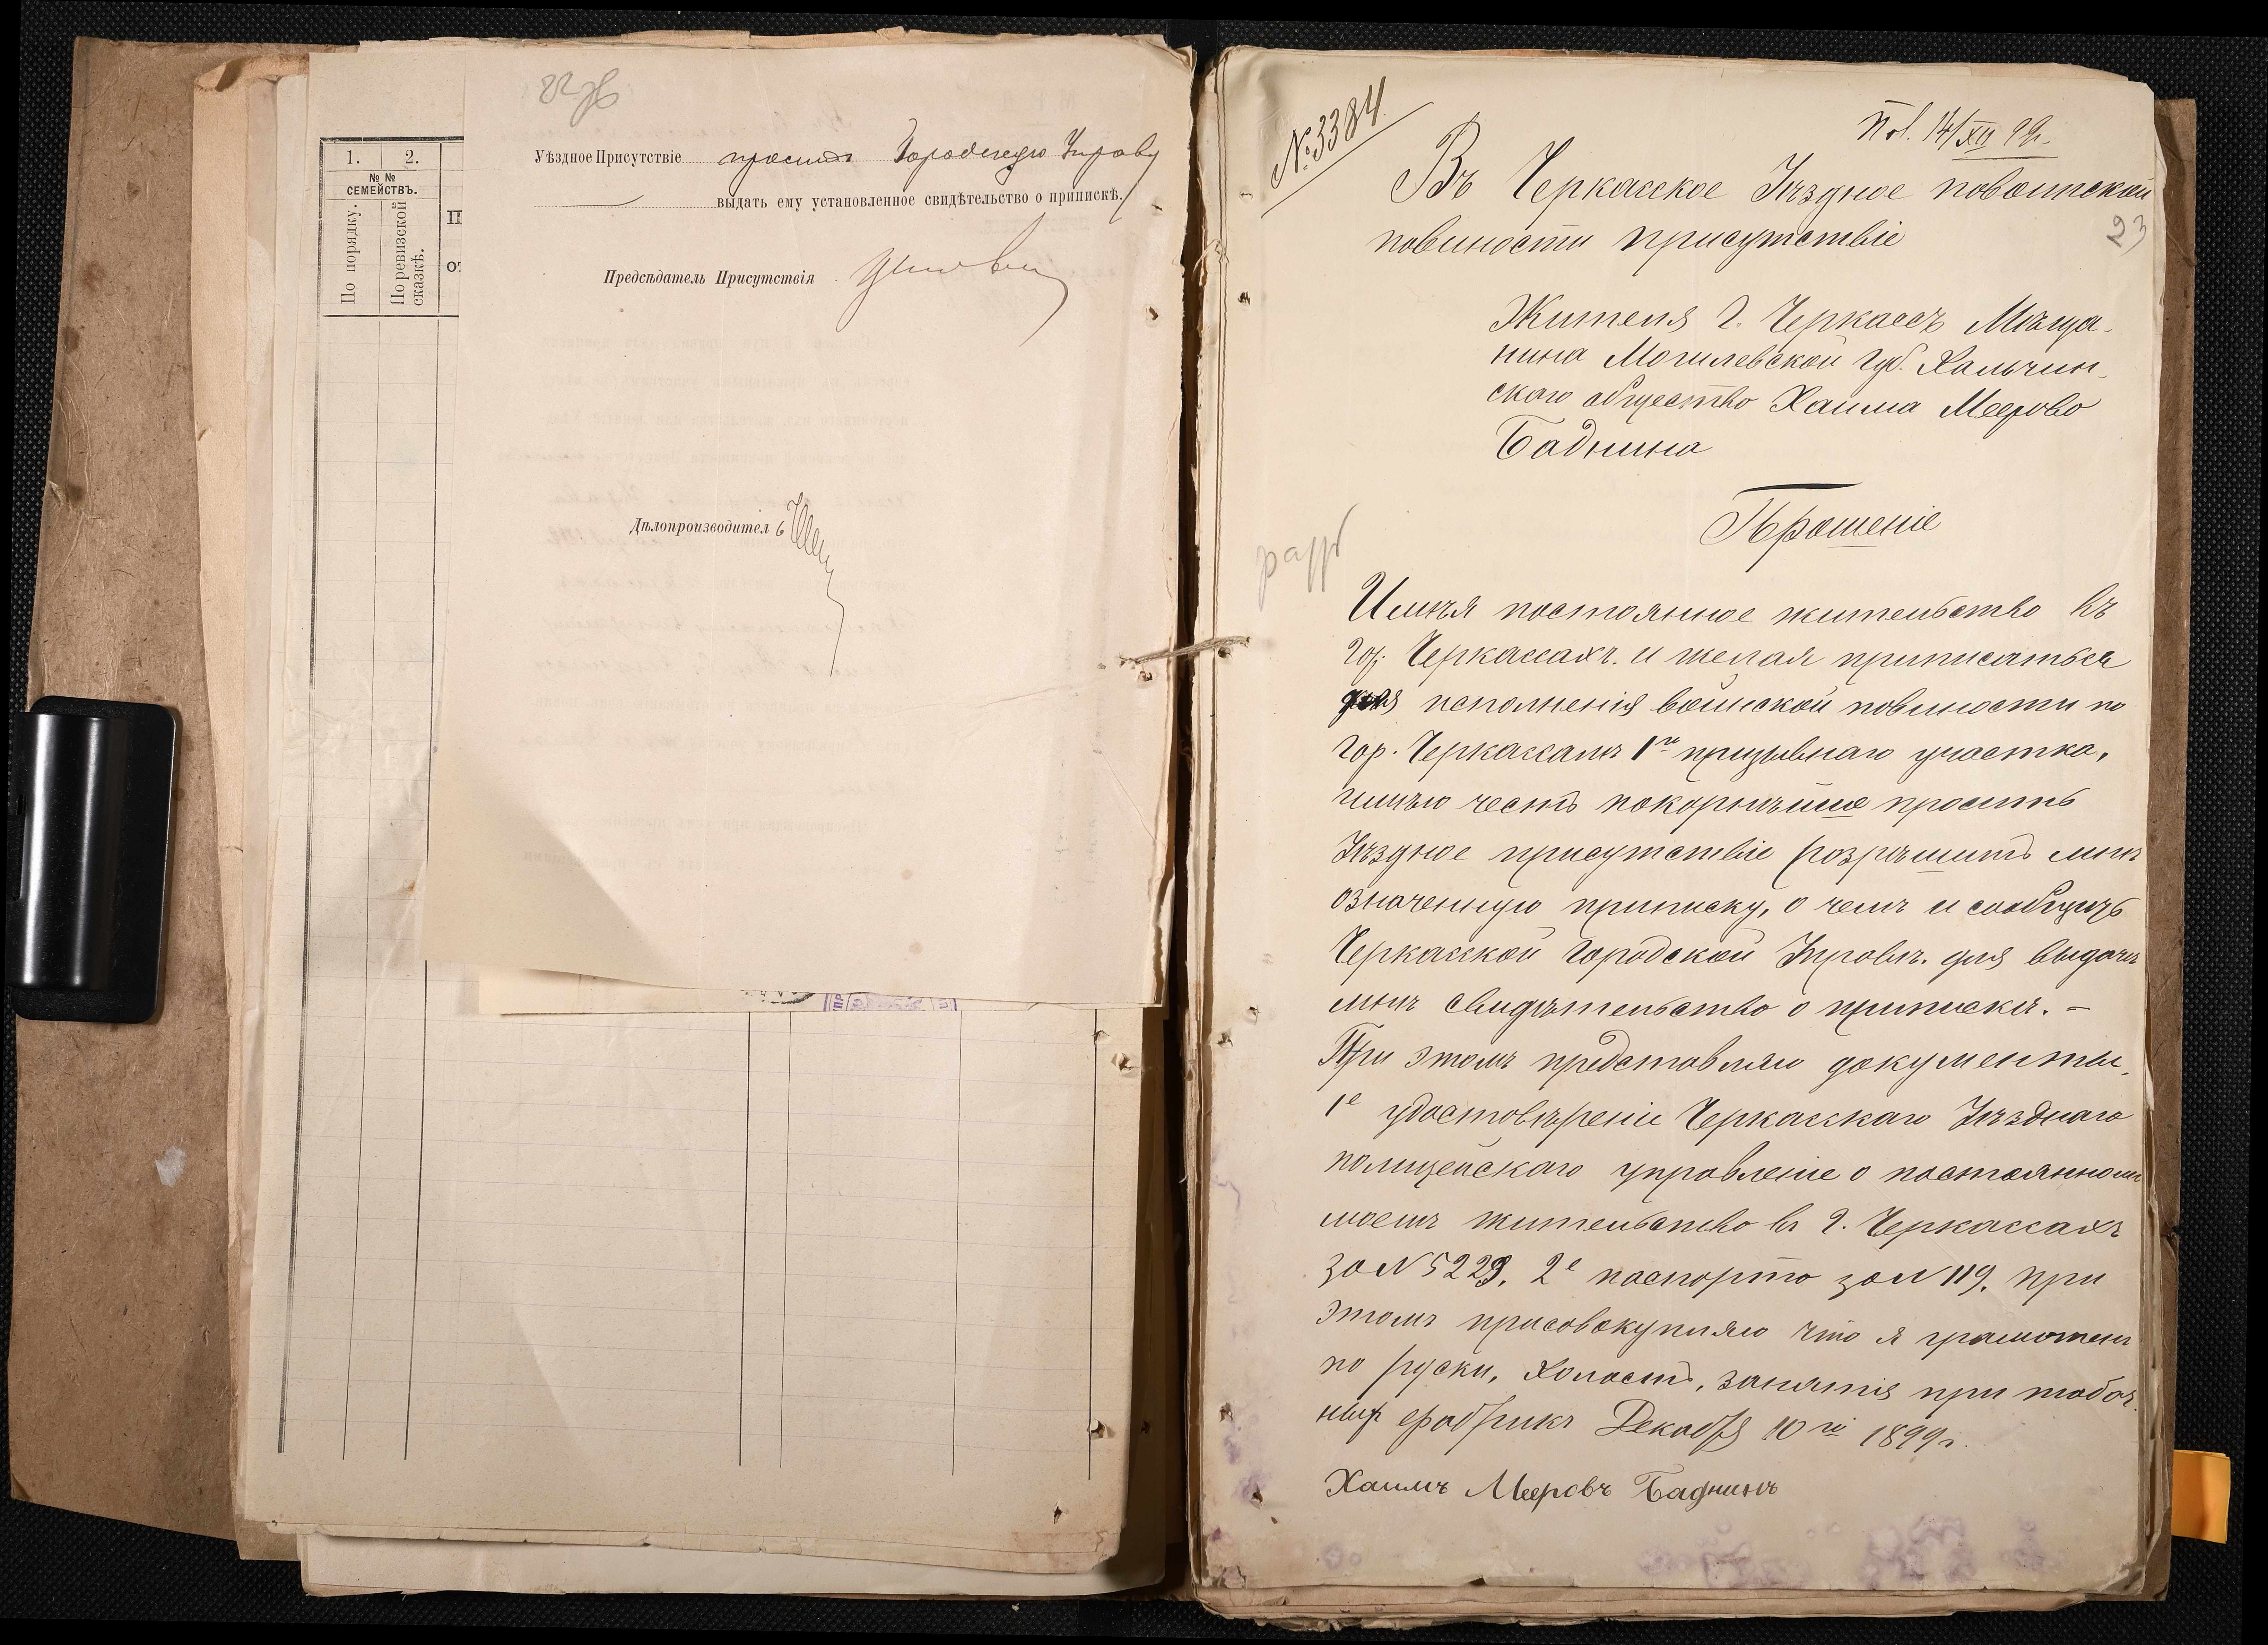 1.
2.
№ №
СЕМЕЙСТВЪ.
По порядку.
По ревизской
сказкѣ.
Уѣздное Присутствіе проситъ Городскую Управу
выдать ему установленное свидѣтельство о припискѣ.
Предсѣдатель Присутствія
Дѣлопроизводитель
№ 3384
Пол. 14/XII 99
23
Въ Черкасское Уѣздное повоинской
повиности присутствіе
Жителя г. Черкассъ Мѣща-
нина Могилевской губ. Хальчин-
скаго общество Хаима Меерово
Баднина
Прошеніе
разр
Имѣя постоянное жительство въ
гор. Черкассахъ. и желая приписаться
для исполненія воинской повиности по
гор. Черкассамъ 1го призывнаго участка,
имѣю честь покорнѣйше просить
Уѣздное присутствіе розрѣшить мнѣ
означенную приписку, о чемъ и сообщить
Черкасской Городской Управѣ. для выдачѣ
мнѣ свидѣтельство о припискѣ. –
При этомъ представляю документы,
1е удостовѣреніе Черкасскаго Уѣзднаго
полицейскаго управленіе о постоянномъ
моемъ жительство въ г. Черкассахъ
за N 5223, 2е паспортъ за N 119, при
этомъ присовокупляю что я грамотенъ
по руски, холостъ, занятія при табач
ной фабрикѣ Декабря 10го 1899 г.
Хаимъ Мееровъ Баднинъ